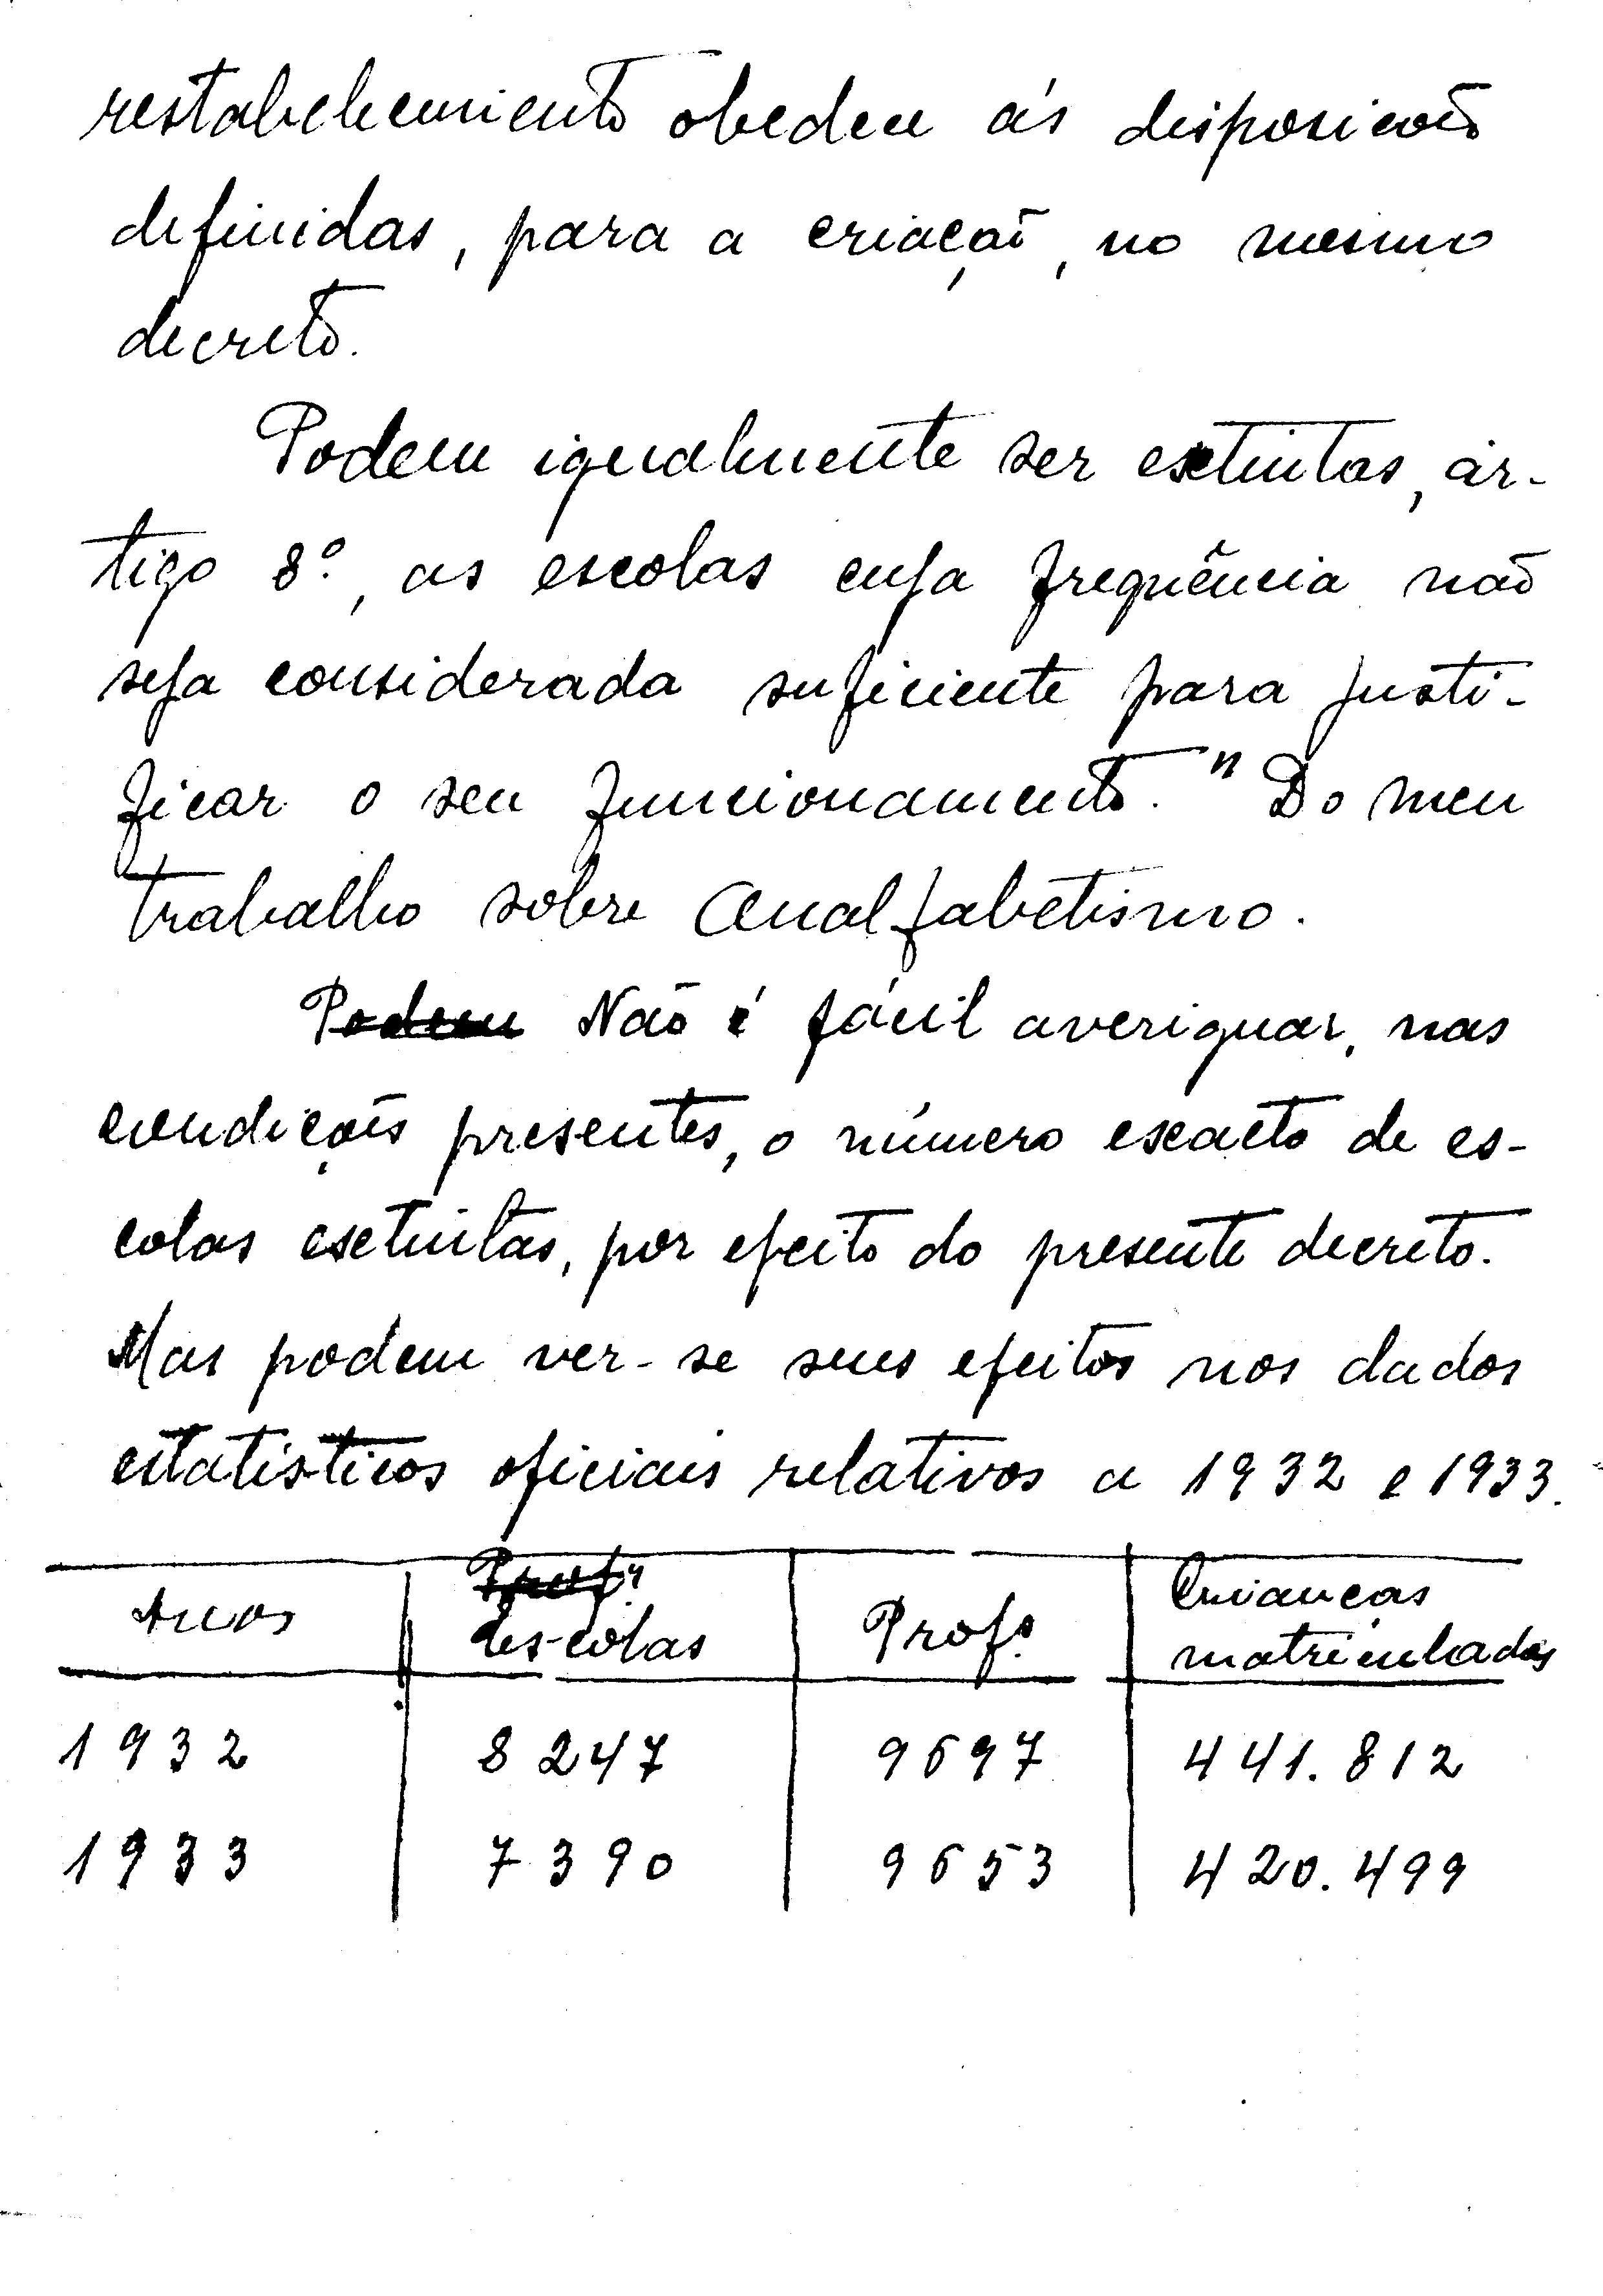 restabelecimento obedece ás disposições
definidas, para a criação, no mesmo
decreto.
Podem igualmente ser extintas, ar-
tigo 8º, as escolas cuja frequência não
seja considerada suficiente para justi-
ficar o seu funcionamento." Do meu
trabalho sobre Analfabetismo.
Podem Não é fácil averiguar, nas
condições presentes, o número exacto de es-
colas extintas, por efeito do presente decreto.
Mas podem ver-se seus efeitos nos dados
estatísticos oficiais relativos a 1932 e 1933.
Anos Escolas Profs. Crianças
matriculadas
1932 8247 9697 441.812
1933 7390 9653 420.499